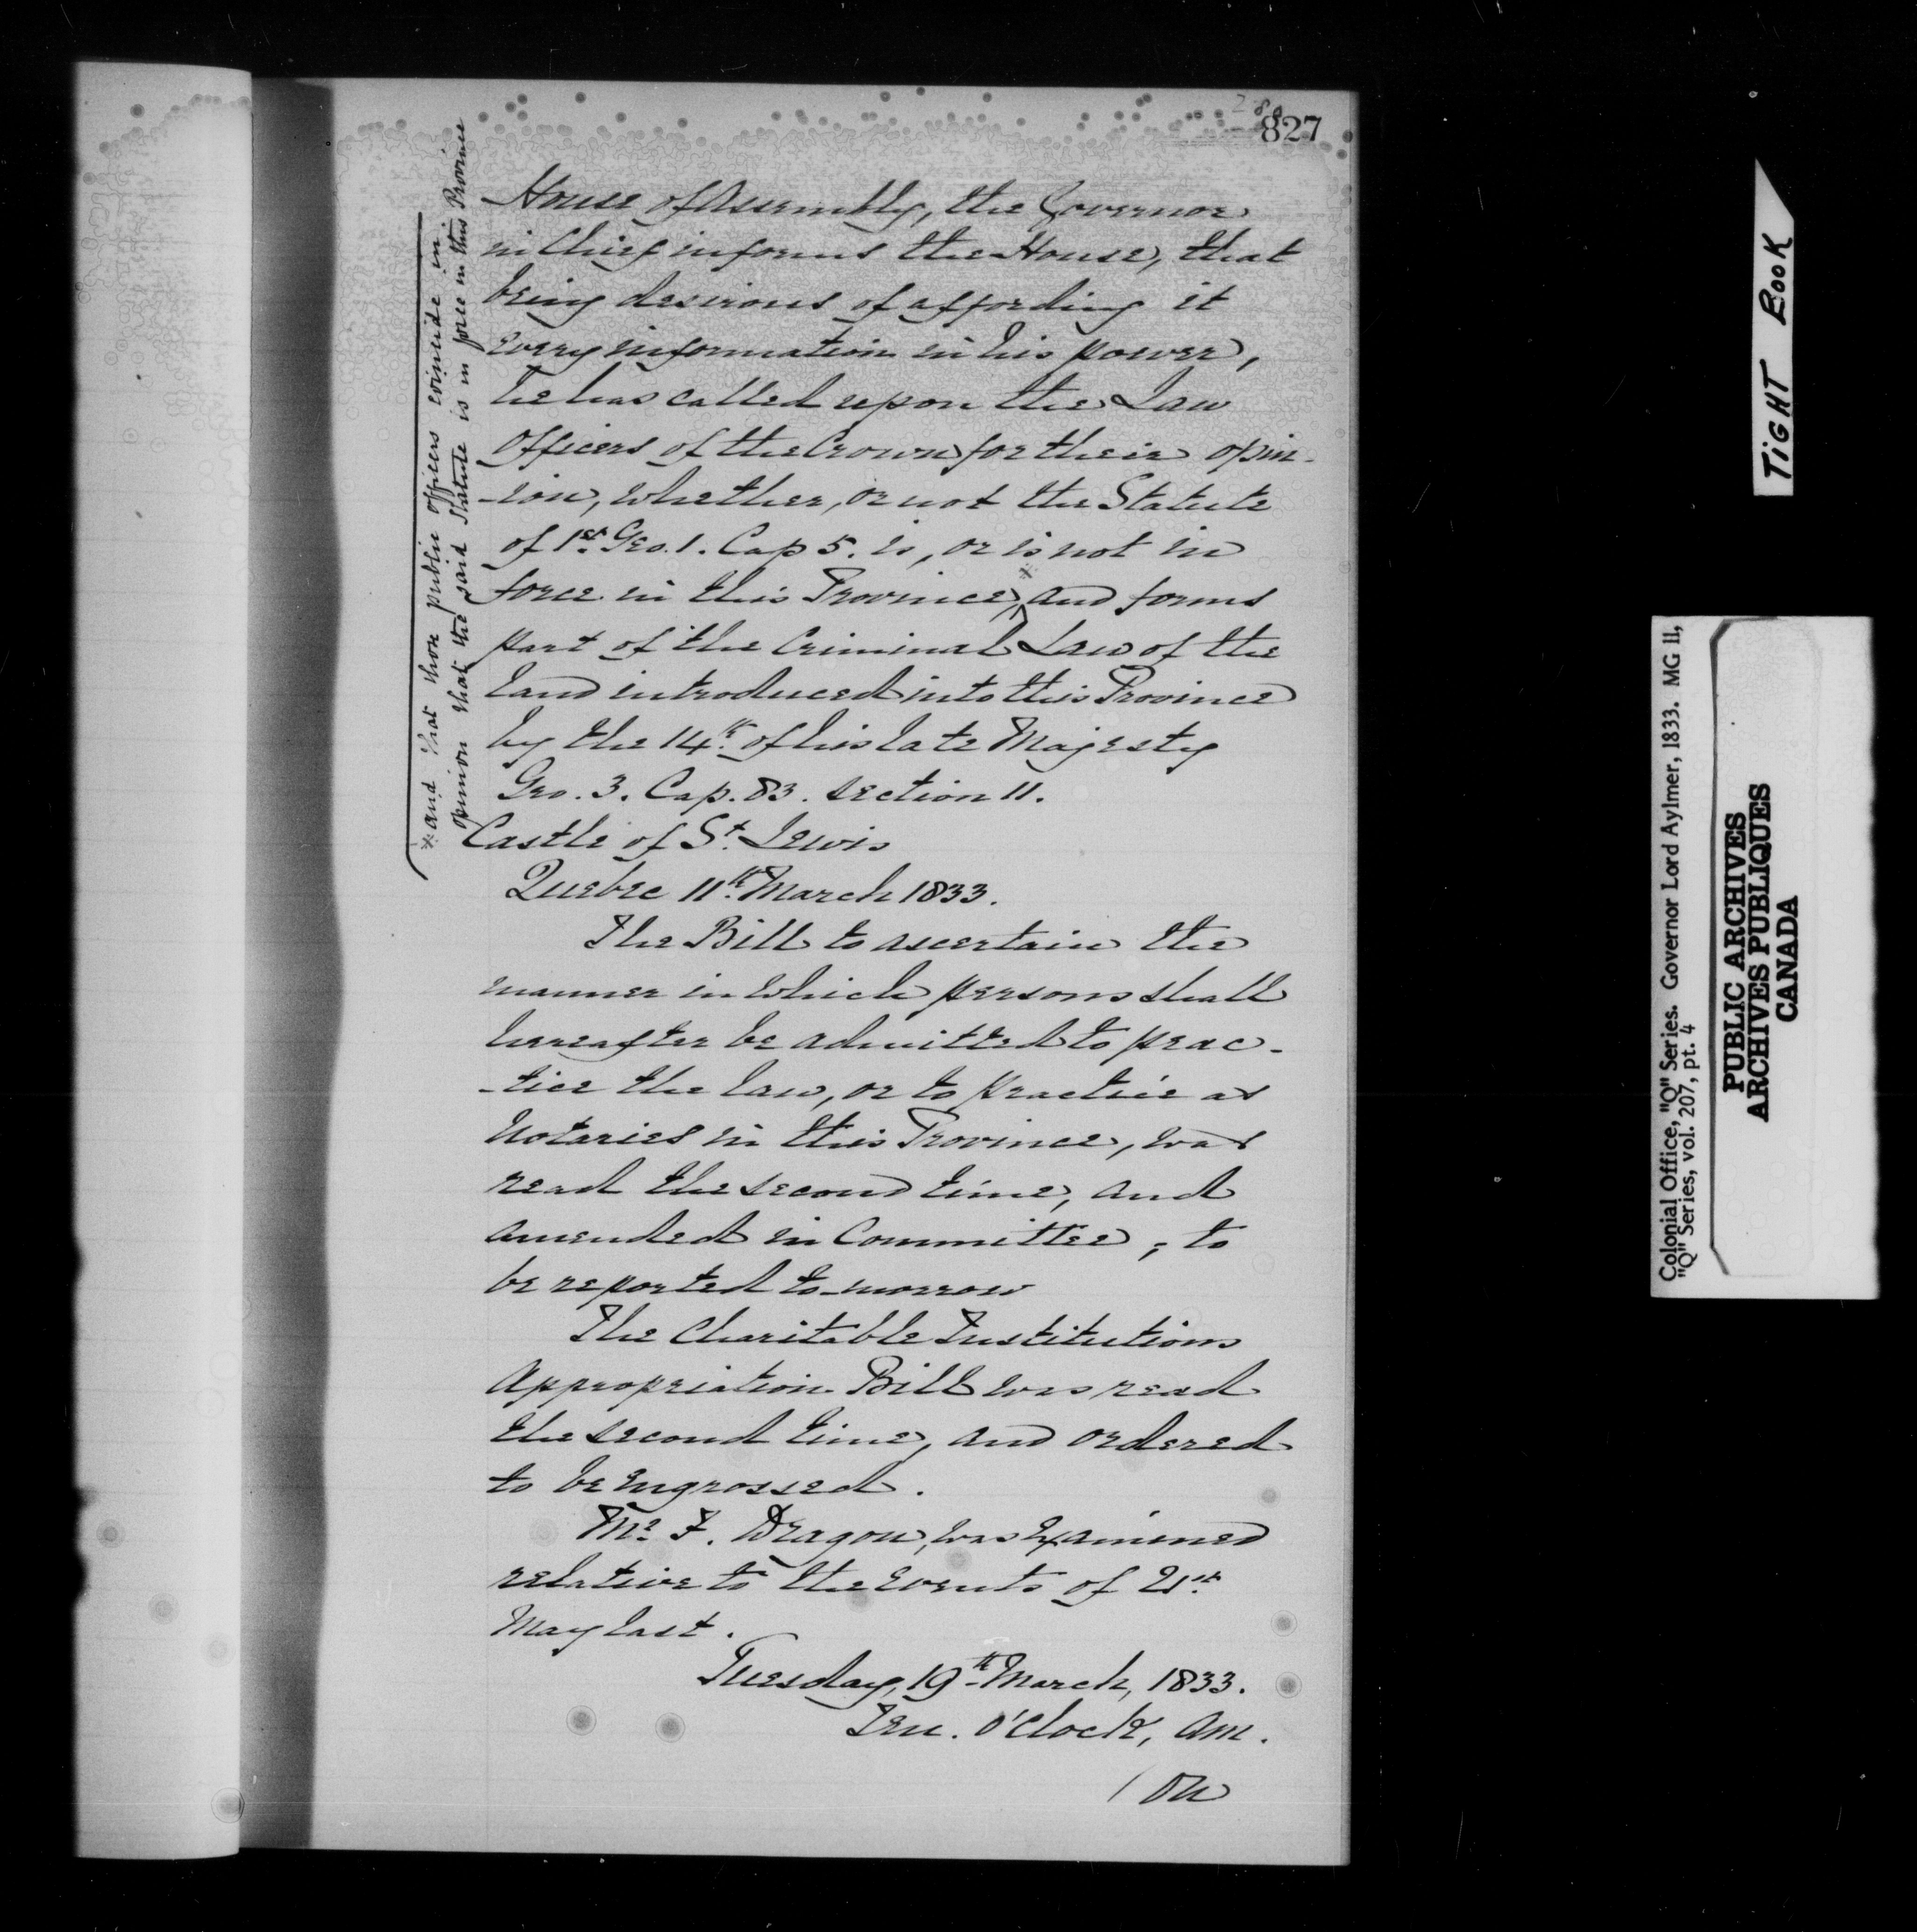 827
House of Assembly, the Governor
in Chief informs the House, that
being desirous of affording it
every information in his power,
he has called upon the Law
Officers of the Crown for their opin-
-ion, whether, or not the Statute
of 1st. Geo. 1. Cap 5. is, or is not in
force in this Province, * and forms
part of the Criminal Law of the
land introduced into this Province
by the 14th. of his late Majesty
Geo. 3. Cap. 83. section 11.
* and that those public officers coincide in
opinion that the said Statute is in force in this Province
Castle of St. Lewis
Quebec 11th. March 1833.
The Bill to ascertain the
manner in which persons shall
hereafter be admitted to prac-
-tice the law, or to practice as
Notaries in this Province, was
read the second time, and
amended in Committee; to
be reported to-morrow
The Charitable Institutions
Appropriation Bill was read
the second time, and ordered
to be Engrossed.
Mr. F. Dragon, was Examined
relative to the Events of 21st.
May last.
Tuesday, 19th March, 1833.
Ten. O'Clock, AM.
/ On
TIGHT BOOK
Colonial Office, "Q" Series. Governor Lord Aylmer, 1833. MG 11,
"Q" Series, vol. 207, pt. 4
PUBLIC ARCHIVES
ARCHIVES PUBLIQUES
CANADA